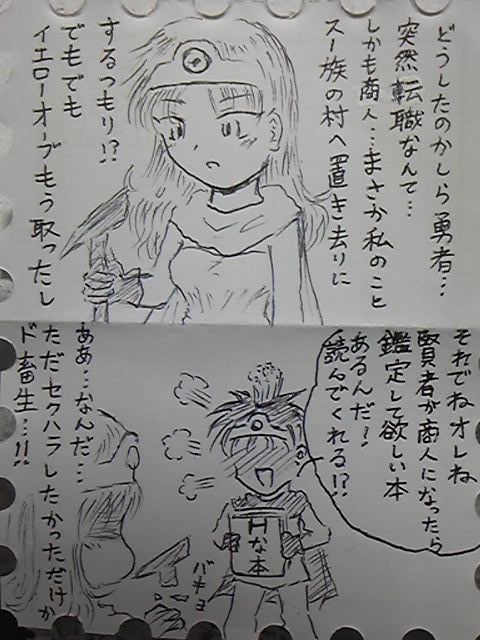 どうしたのかしら勇者…
突然転職なんて…
しかも商人…まさか私のこと
スー族の村へ置き去りに
するつもり!?
でもでも
イエローオーブもう取ったし
それでねオレね
賢者が商人になったら
鑑定して欲しい本
あるんだ!
読んでくれる!?
Hな本
バキョ
ああ…なんだ…
ただセクハラしたかっただけか
ド畜生…!!